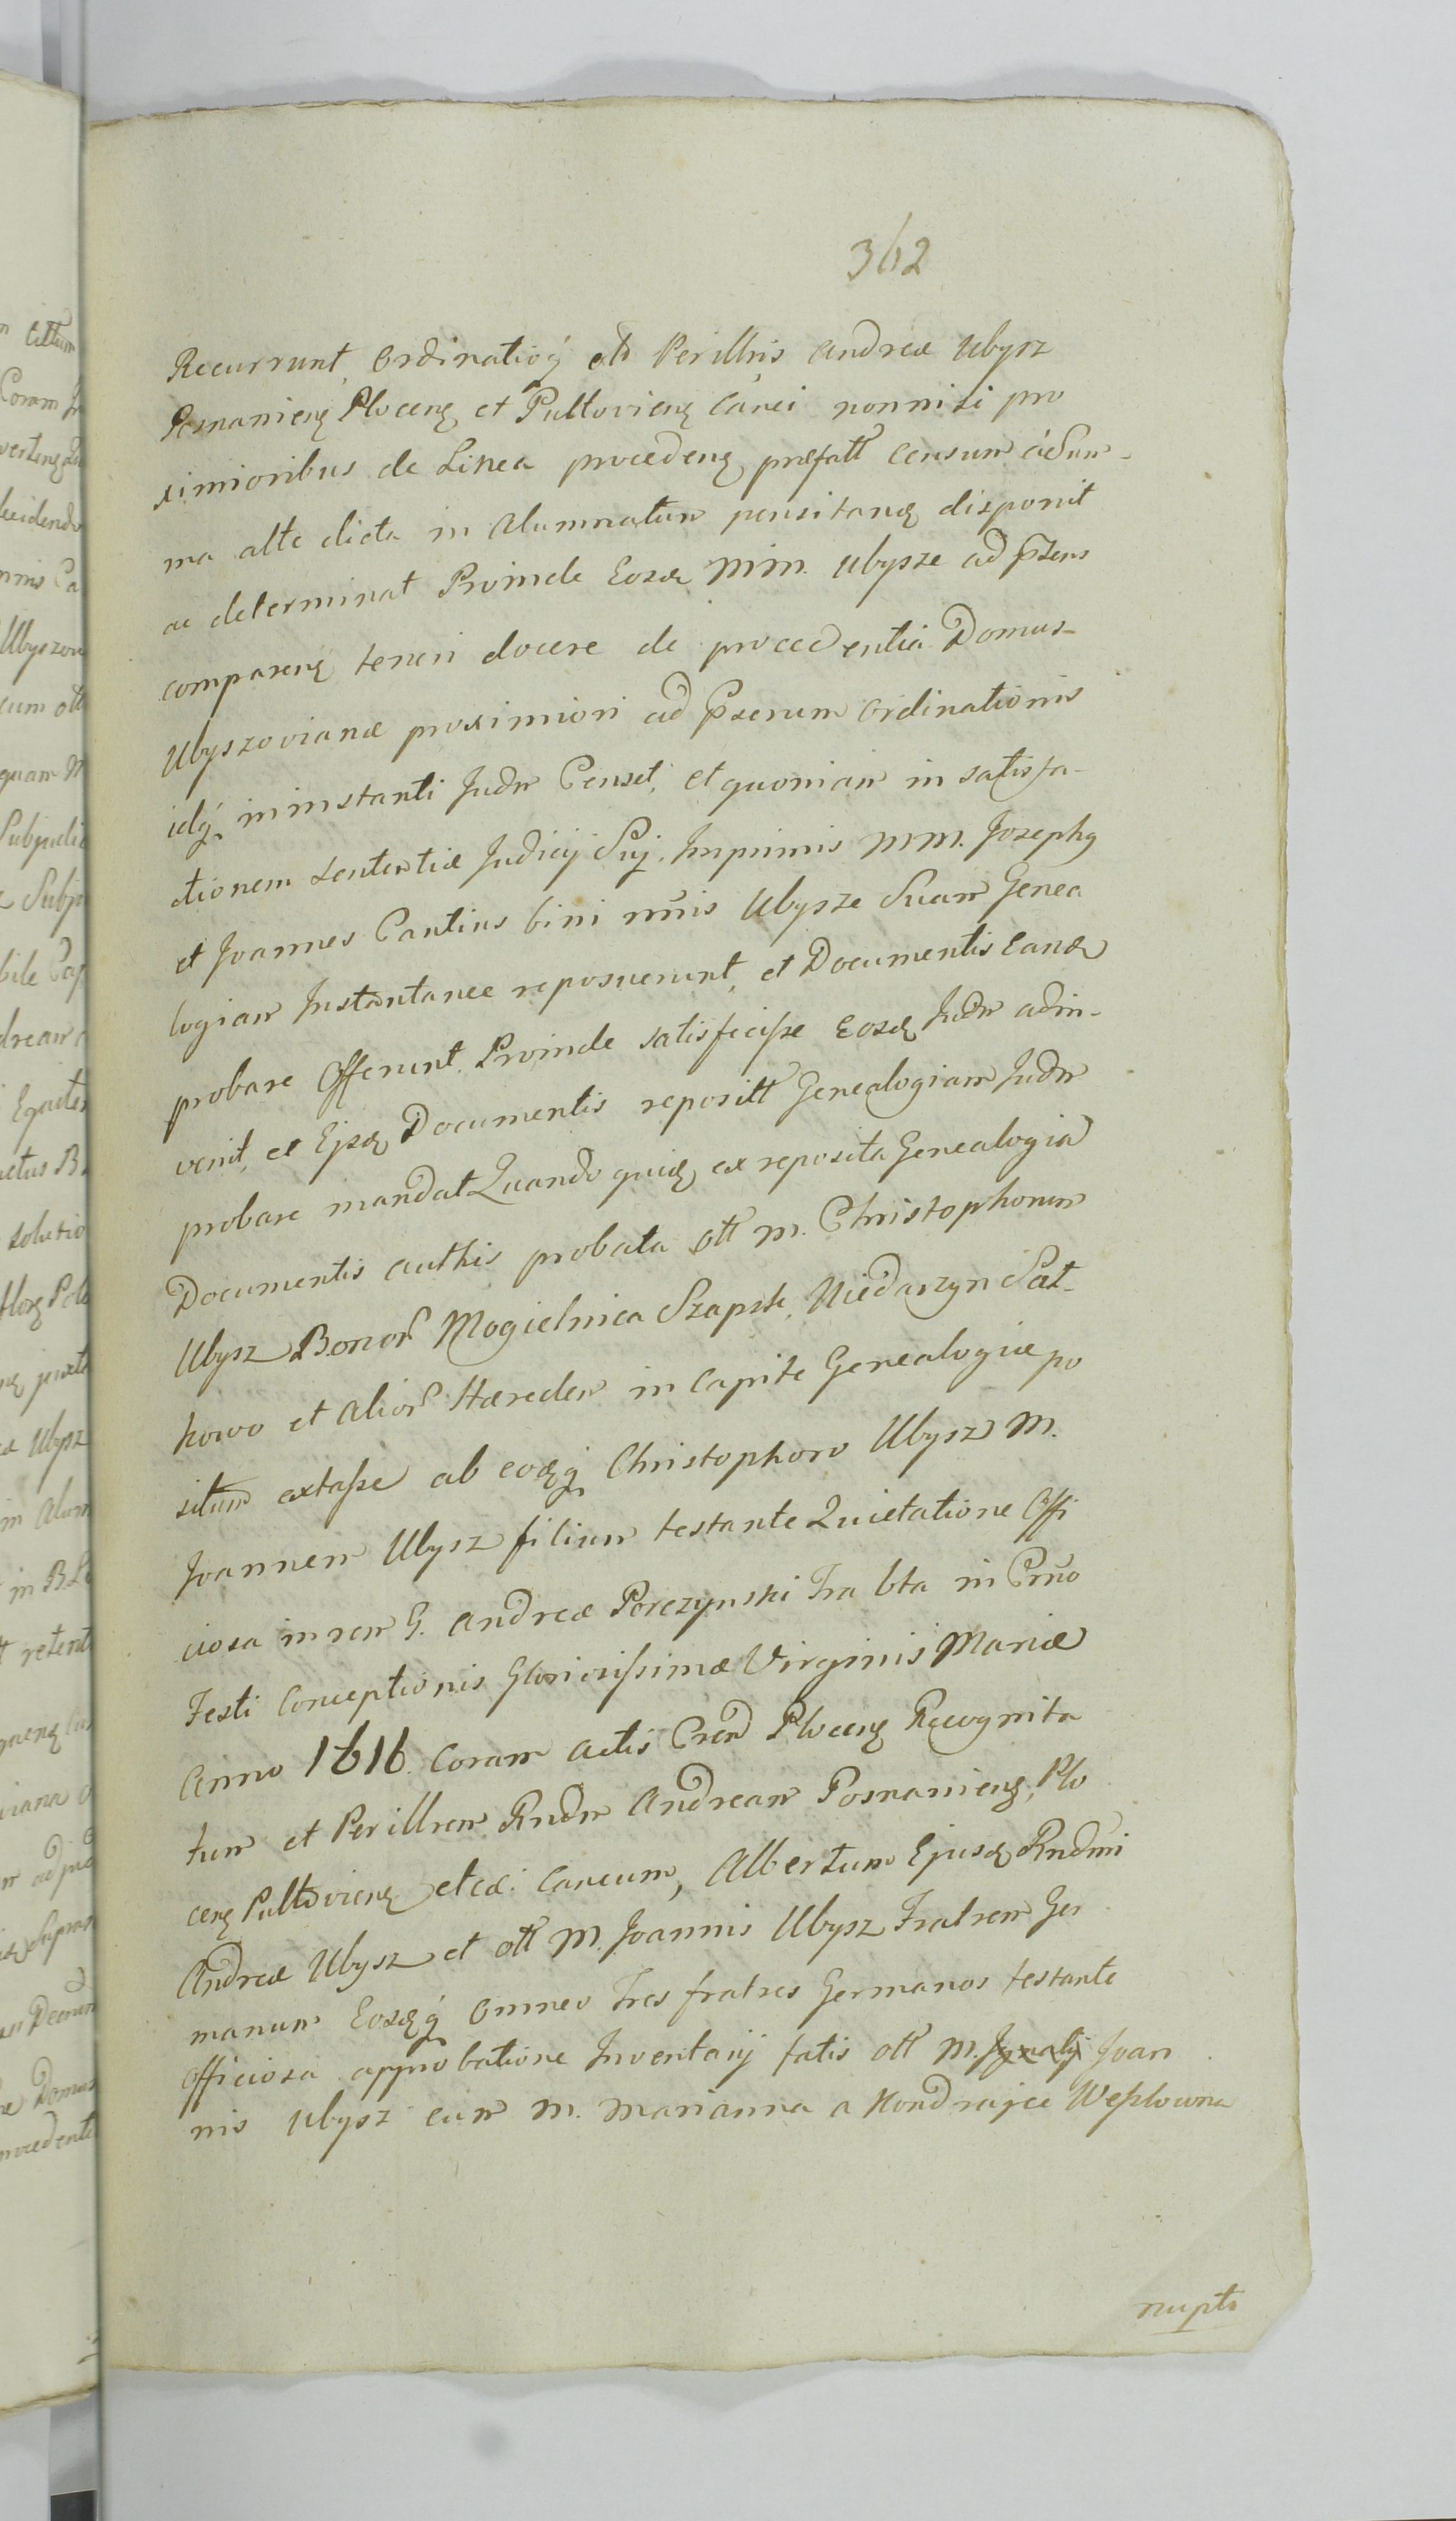 362
Recurrunt, Ordinatioq́ olt Perillris Andreæ Ubysz
Posnanienꝫ Plocenꝫ et Pultovienꝫ Canci nonnisi pro
ximioribus de Linea procedenꝫ præfatt Censum a Sum-
ma alte dicta in Alumnatum pensitanꝫ disponit
ac determinat Proinde Eosdꝫ Mm. Ubysze ad pñens
comparenꝫ teneri docere de procedentia Domus
Ubyszovianæ proximiori ad Pñerum Ordinationis
idq́ in instanti Judm Censet, et quoniam in satisfa-
ctionem Sententiæ Judicij Sui, Inprimis MM. Josephꝯ
et Joannes Cantius bini nñis Ubysze Suam Genea
logiam Instantanee reposuerunt, et Documentis eandꝫ
probare Offerunt, Proinde satisfecisse Eosdꝫ Judm adin-
venit, et Ejsdꝫ Documentis reposittˢ Genealogiam Judm
probare mandat Quandoquidꝫ ex reposita Genealogia
Documentis authis probata olt M. Christophorum
Ubysz Bonor Mogielnica Szapsk, Niedarzyn Sat-
kowo et alior Hæredem in Capite Genealogiæ po
situm extasse ab eodꝫq́ Christophoro Ubysz M.
Joannem Ubysz filium testante Quietatione Offi
ciosa in rem G. Andreæ Porczynski Fra 6ta in Crño
Festi Conceptionis Gloriosissimæ Virginis Mariæ
Anno 1616. Coram Actis Cren Plocenꝫ Recognita
tum et Perillrem Rndm Andream Posnanienꝫ, Plo
cenꝫ Pultovienꝫ etcæ. Cancum, Albertum Ejusdꝫ Rndmi
Andreæ Ubysz et olt M. Joannis Ubysz Fratrem Ger
manum Eosdꝫq́ Omnes Tres fratres Germanos testante
Officiosa approbatione Inventarij fatis olt M. Joan
nis Ubysz cum M. Marianna a Kondrajec Wesslowna
nupto